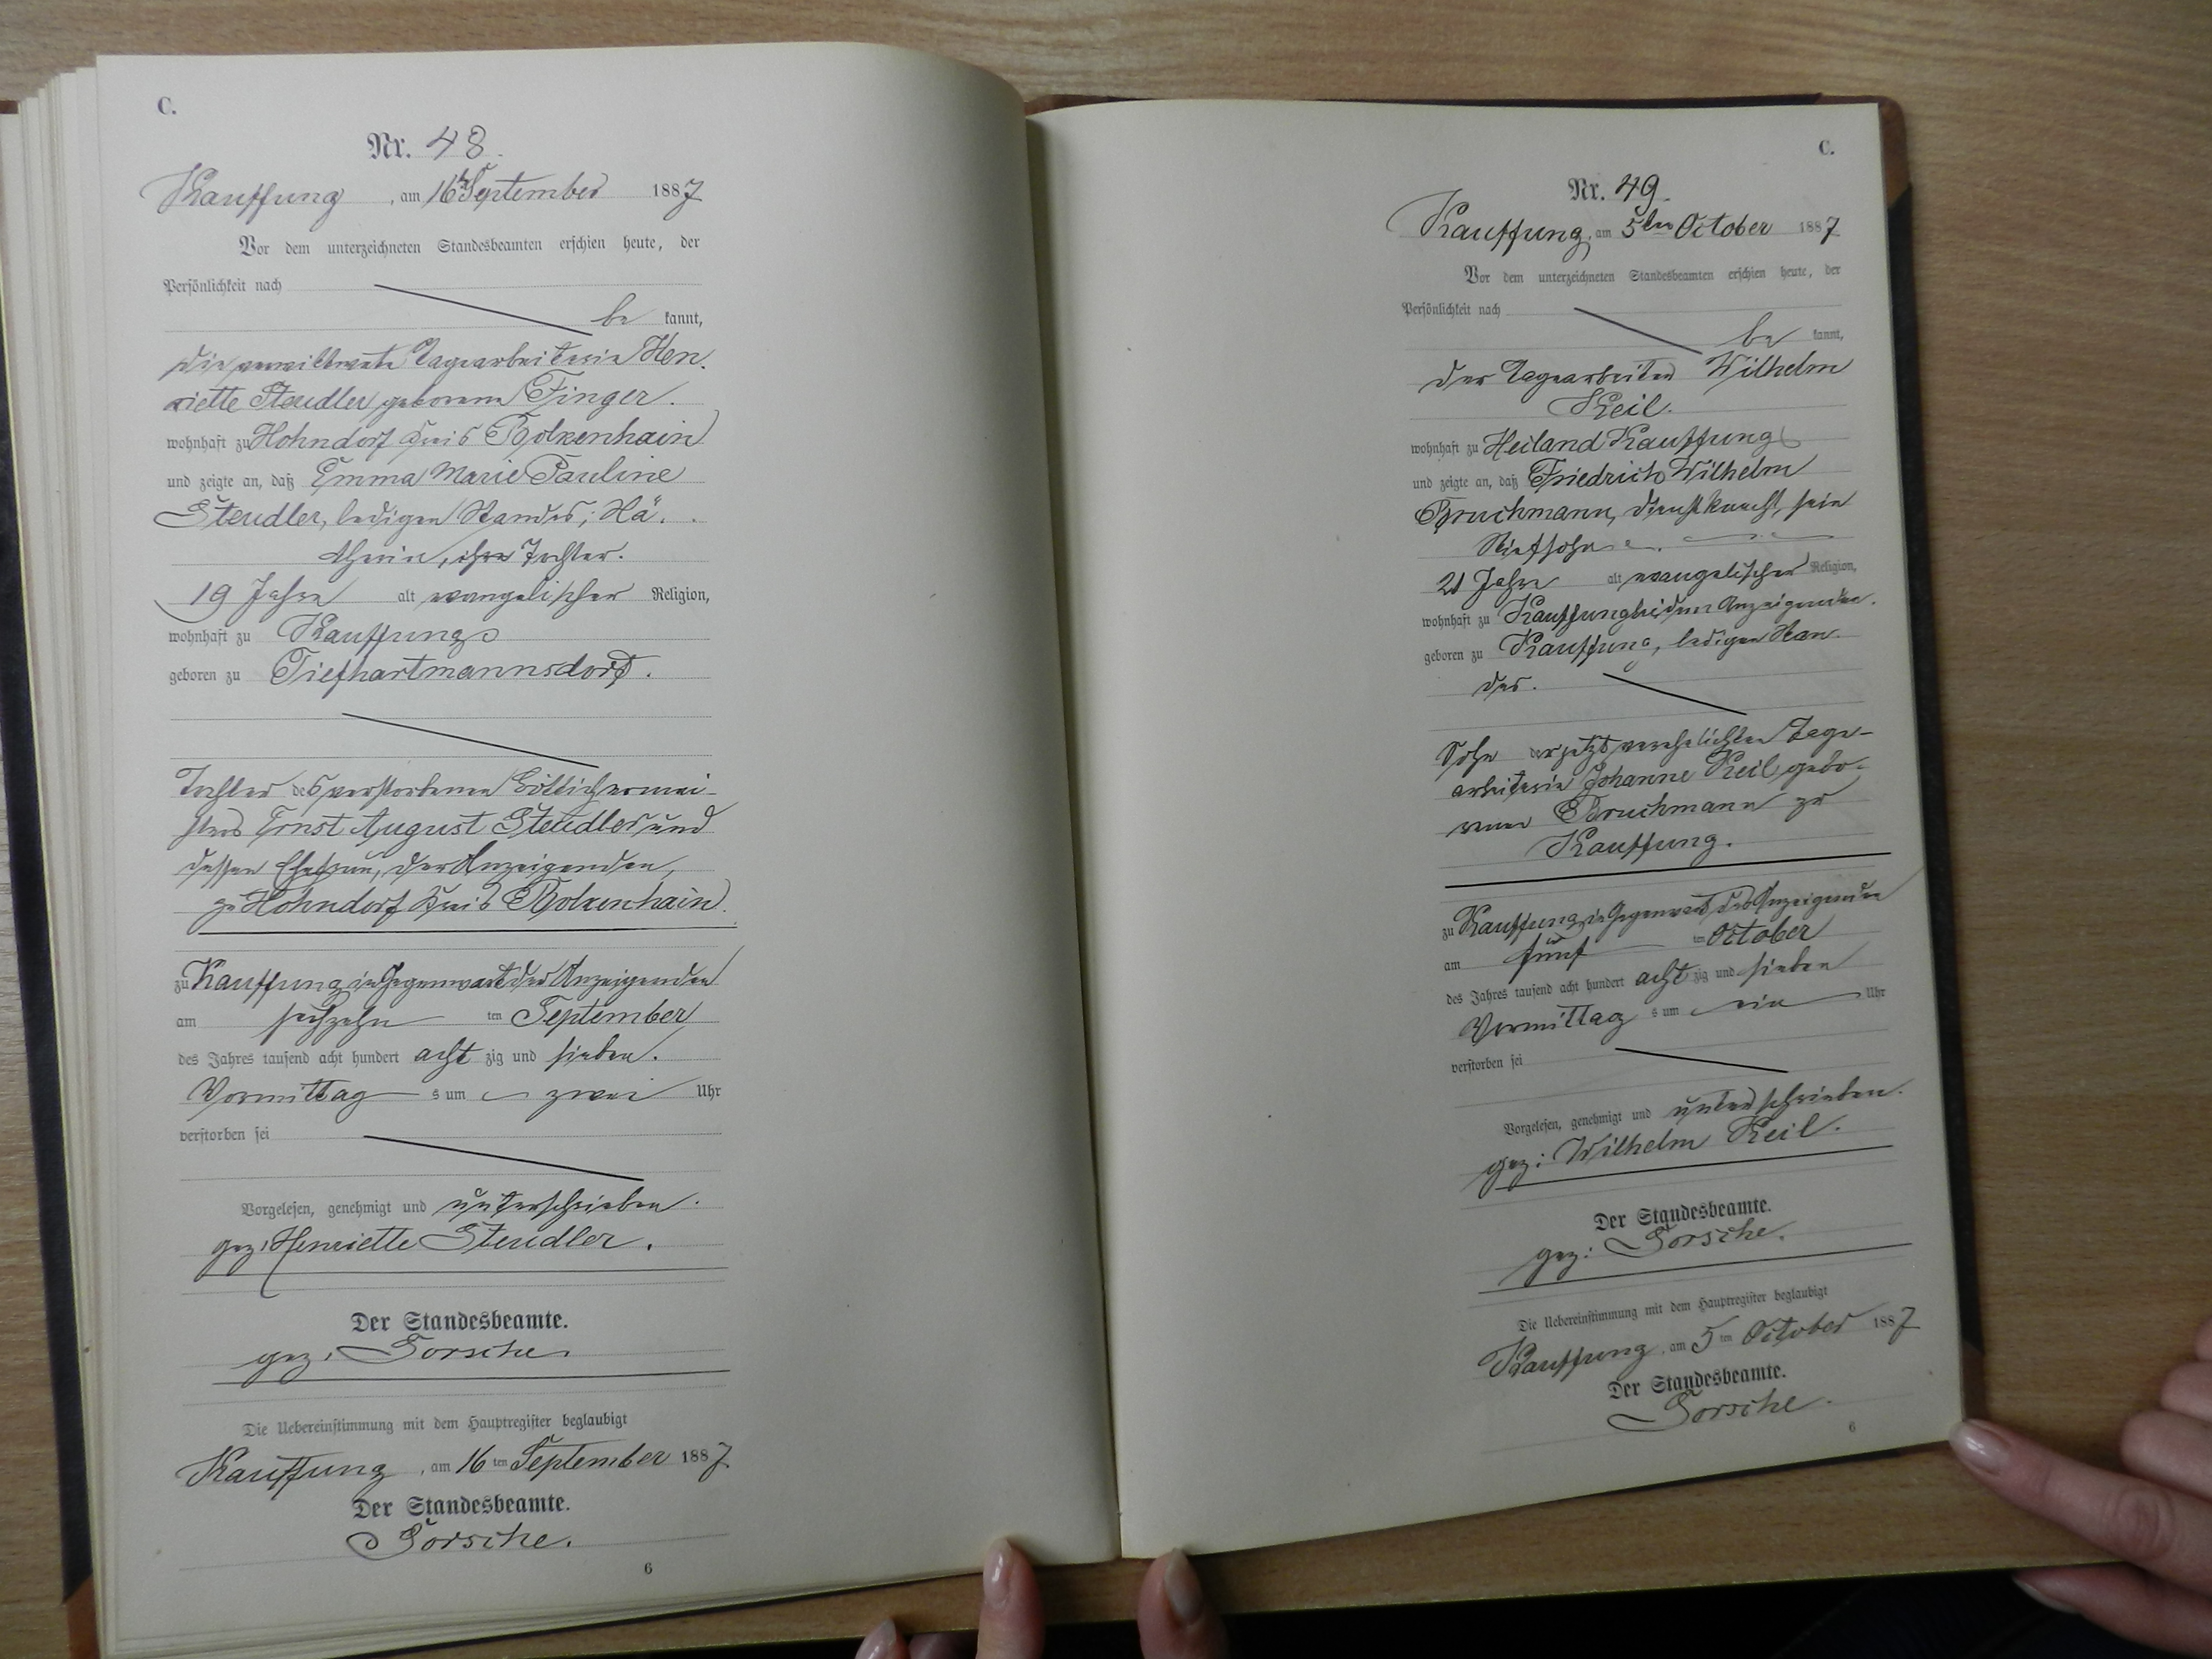 C.
Nr. 48.
Kauffung, am 16ten September 1887
Vor dem unterzeichneten Standesbeamten erschien heute, der
Persönlichkeit nach
be kannt,
die verwittwete Tagearbeiterin Hen-
riette Steudler geborene Finger.
wohnhaft zu Hohndorf Kreis Bolkenhain
und zeigte an, daß Emma Marie Pauline
Steudler, ledigen Standes, Nä-
therin, ihre Tochter.
19 Jahre alt evangelischer Religion,
wohnhaft zu Kauffung
geboren zu Tiefhartmannsdorf.
Tochter des verstorbenen Böttichermei-
sters Ernst August Steudler und
dessen Ehefrau, der Anzeigenden,
zu Hohndorf Kreis Bolkenhain.
zu Kauffung in Gegenwart der Anzeigenden
am sechzehn ten September
des Jahres tausend acht hundert acht zig und sieben.
Vormittag s um zwei Uhr
verstorben sei
Vorgelesen, genehmigt und unterschrieben.
gez: Henriette Steudler.
Der Standesbeamte.
gez: Torsche.
Die Uebereinstimmung mit dem Hauptregister beglaubigt
Kauffung, am 16 ten September 1887
Der Standesbeamte.
Torsche.
6
C.
Nr. 49.
Kauffung, am 5ten October 1887
Vor dem unterzeichneten Standesbeamten erschien heute, der
Persönlichkeit nach
be kannt,
der Tagearbeiter Wilhelm
Keil.
wohnhaft zu Heiland Kauffung
und zeigte an, daß Friedrich Wilhelm
Bruchmann, Dienstknecht, sein
Stiefsohn
21 Jahre alt evangelischer Religion,
wohnhaft zu Kauffung bei dem Anzeigenden.
geboren zu Kauffung, ledigen Stan-
des.
Sohn der jetzt verehelichten Tage-
arbeiterin Johanne Keil gebo-
renen Bruchmann zu
Kauffung.
zu Kauffung in Gegenwart des Anzeigenden
am fünf ten October
des Jahres tausend acht hundert acht zig und sieben
Vormittag s um ein Uhr
verstorben sei
Vorgelesen, genehmigt und unterschrieben.
gez: Wilhelm Keil.
Der Standesbeamte.
gez: Torsche.
Die Uebereinstimmung mit dem Hauptregister beglaubigt
Kauffung, am 5 ten October 1887
Der Standesbeamte.
Torsche.
6